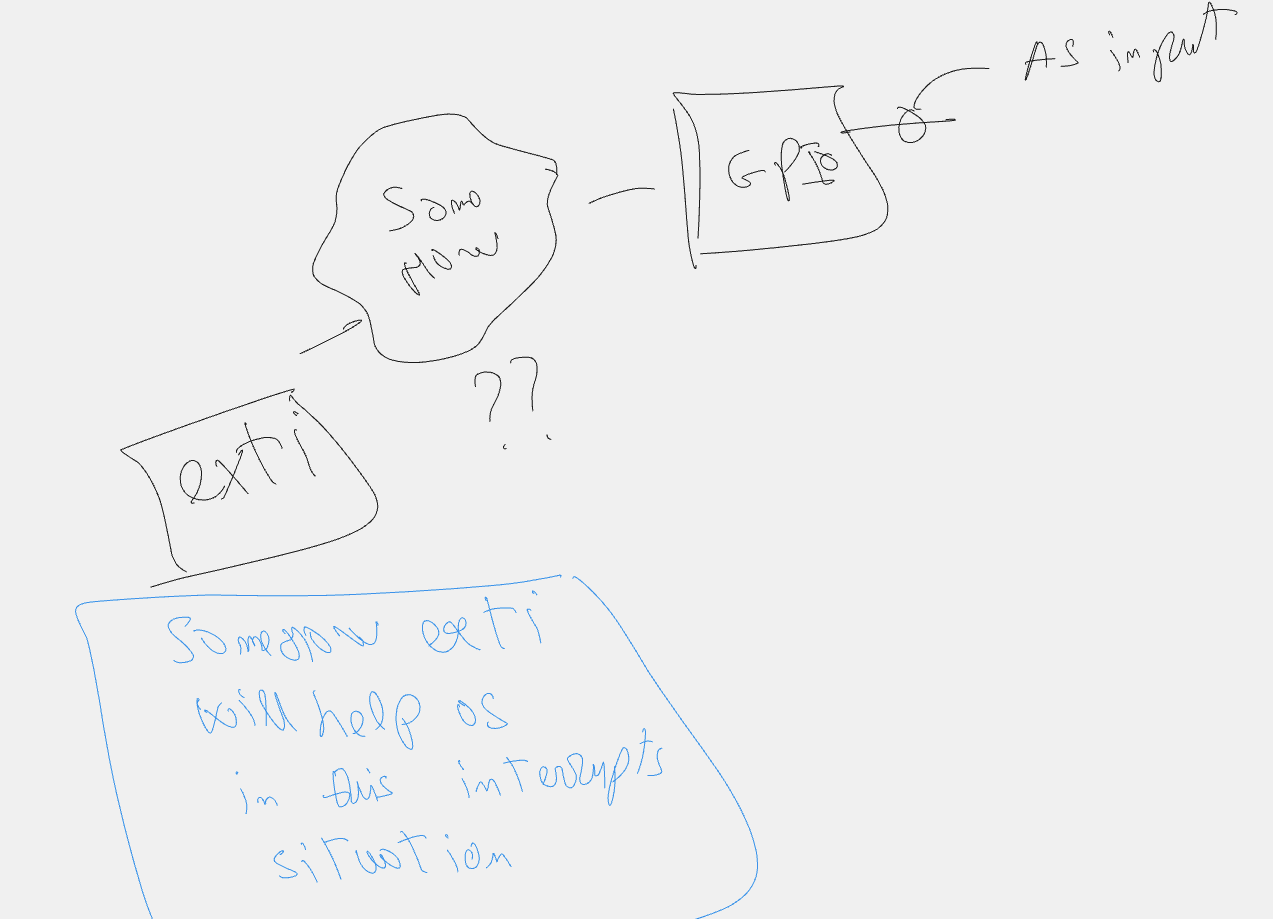 As input
GPIO
Some
How
??
exti
Somehow exti
will help us
in this interrupts
situation